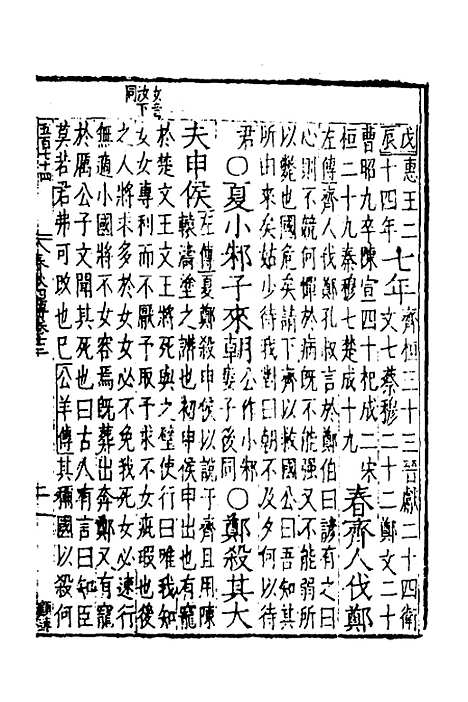 戊辰 惠王二十四年 七年 齊桓三十三晉獻二十四衛
文七蔡穆二十二鄭文二十
曹昭九卒陳宣四十杞成二宋
桓二十九秦穆七楚成十九 春齊人伐鄭
左傳齊人伐鄭孔叔言於鄭伯曰諺有之曰
心則不競何憚於病既不能強又不能弱所
以斃也國危矣請下齊以救國公曰吾知其
所由來矣姑少待我對曰朝不及夕何以待
君〇夏小邾子來朝公作小邾婁子後同〇鄭殺其大
夫申侯左傳夏鄭殺申侯以說于齊且用陳
轅濤塗之譖也初申侯申出也有寵
於楚文王文王將死與之璧使行曰唯我知
女女專利而不厭予取予求不女疵瑕也後
之人將求多於女女必不免我死女必速行
無適小國將不女容焉既葬出奔鄭又有寵
於厲公子文聞其死也曰古人有言曰知臣
莫若君弗可改也已公羊傳其稱國以殺何
女音汝下同
春秋四傳卷十三